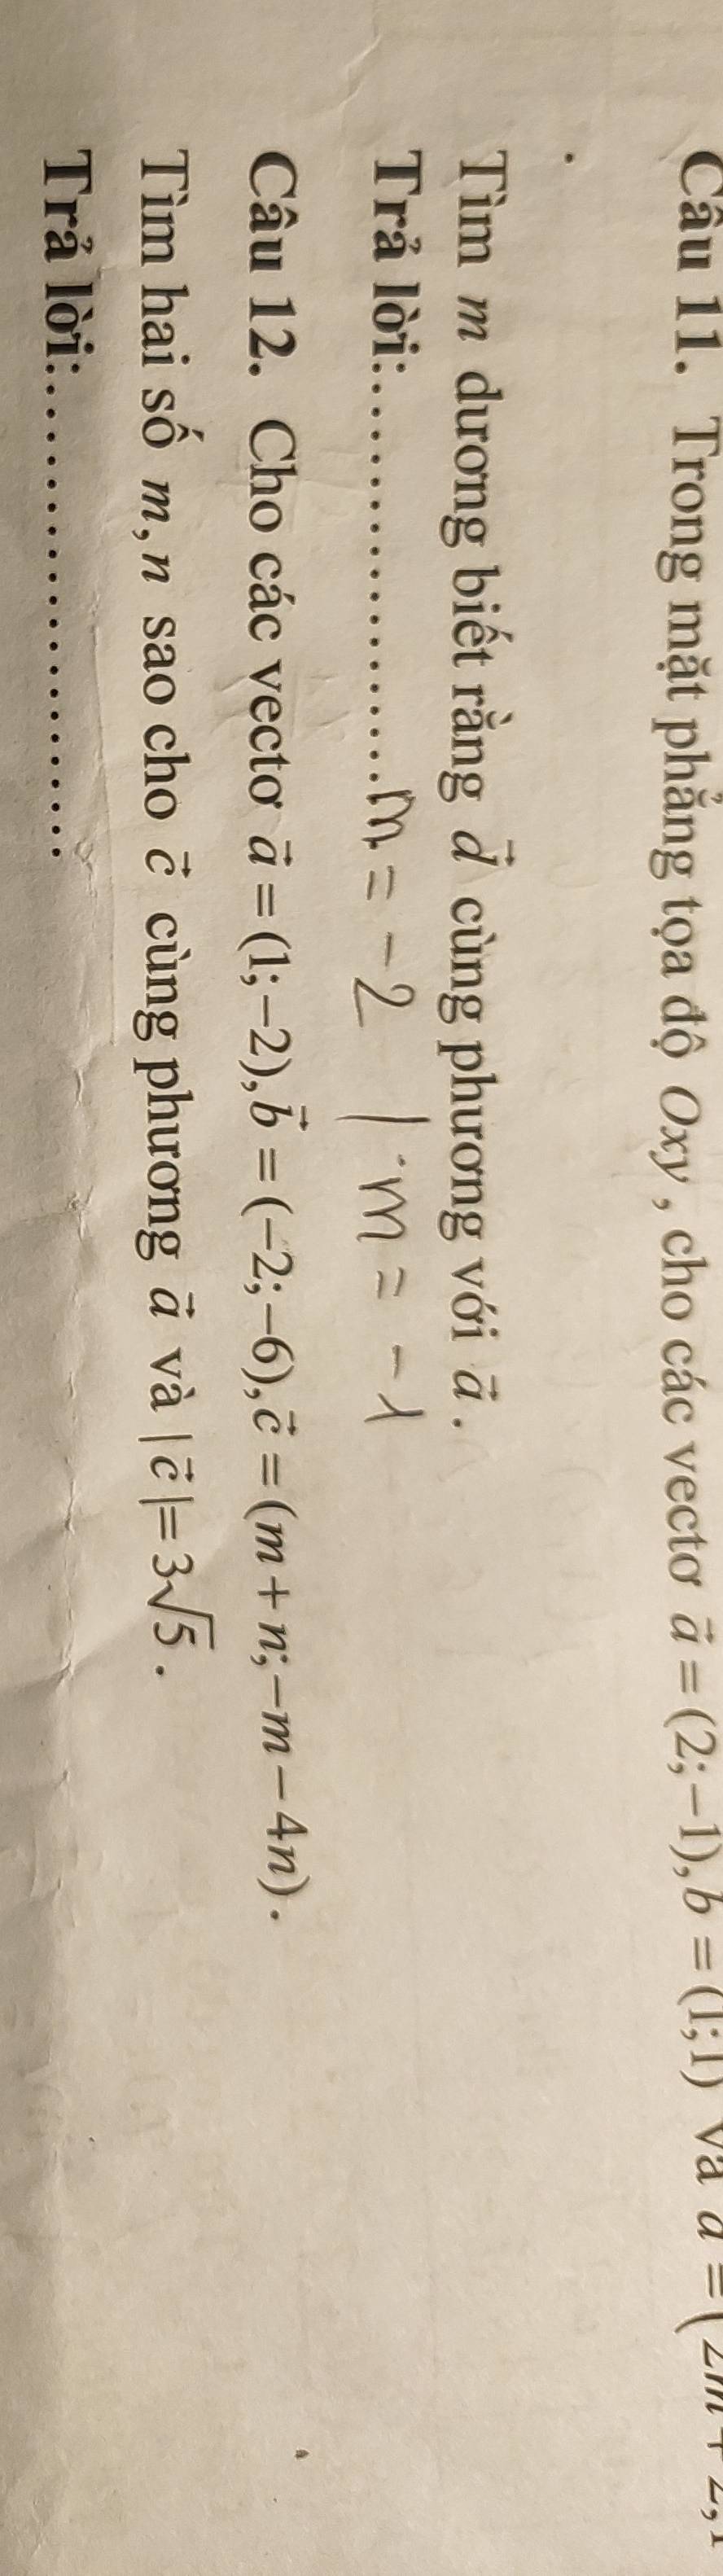 Câu 11. Trong mặt phẳng tọa độ Oxy, cho các vectơ a⃗ = (2;−1), b⃗ = (1;1) và d⃗ = (2m + 2;
Tìm m dương biết rằng d⃗ cùng phương với a⃗.
Trả lời:........................ m = -2 | m = -1
Câu 12. Cho các vectơ a⃗ = (1;−2), b⃗ = (−2;−6), c⃗ = (m + n;−m − 4n).
Tìm hai số m,n sao cho c⃗ cùng phương a⃗ và |c⃗| = 3√5.
Trả lời:........................